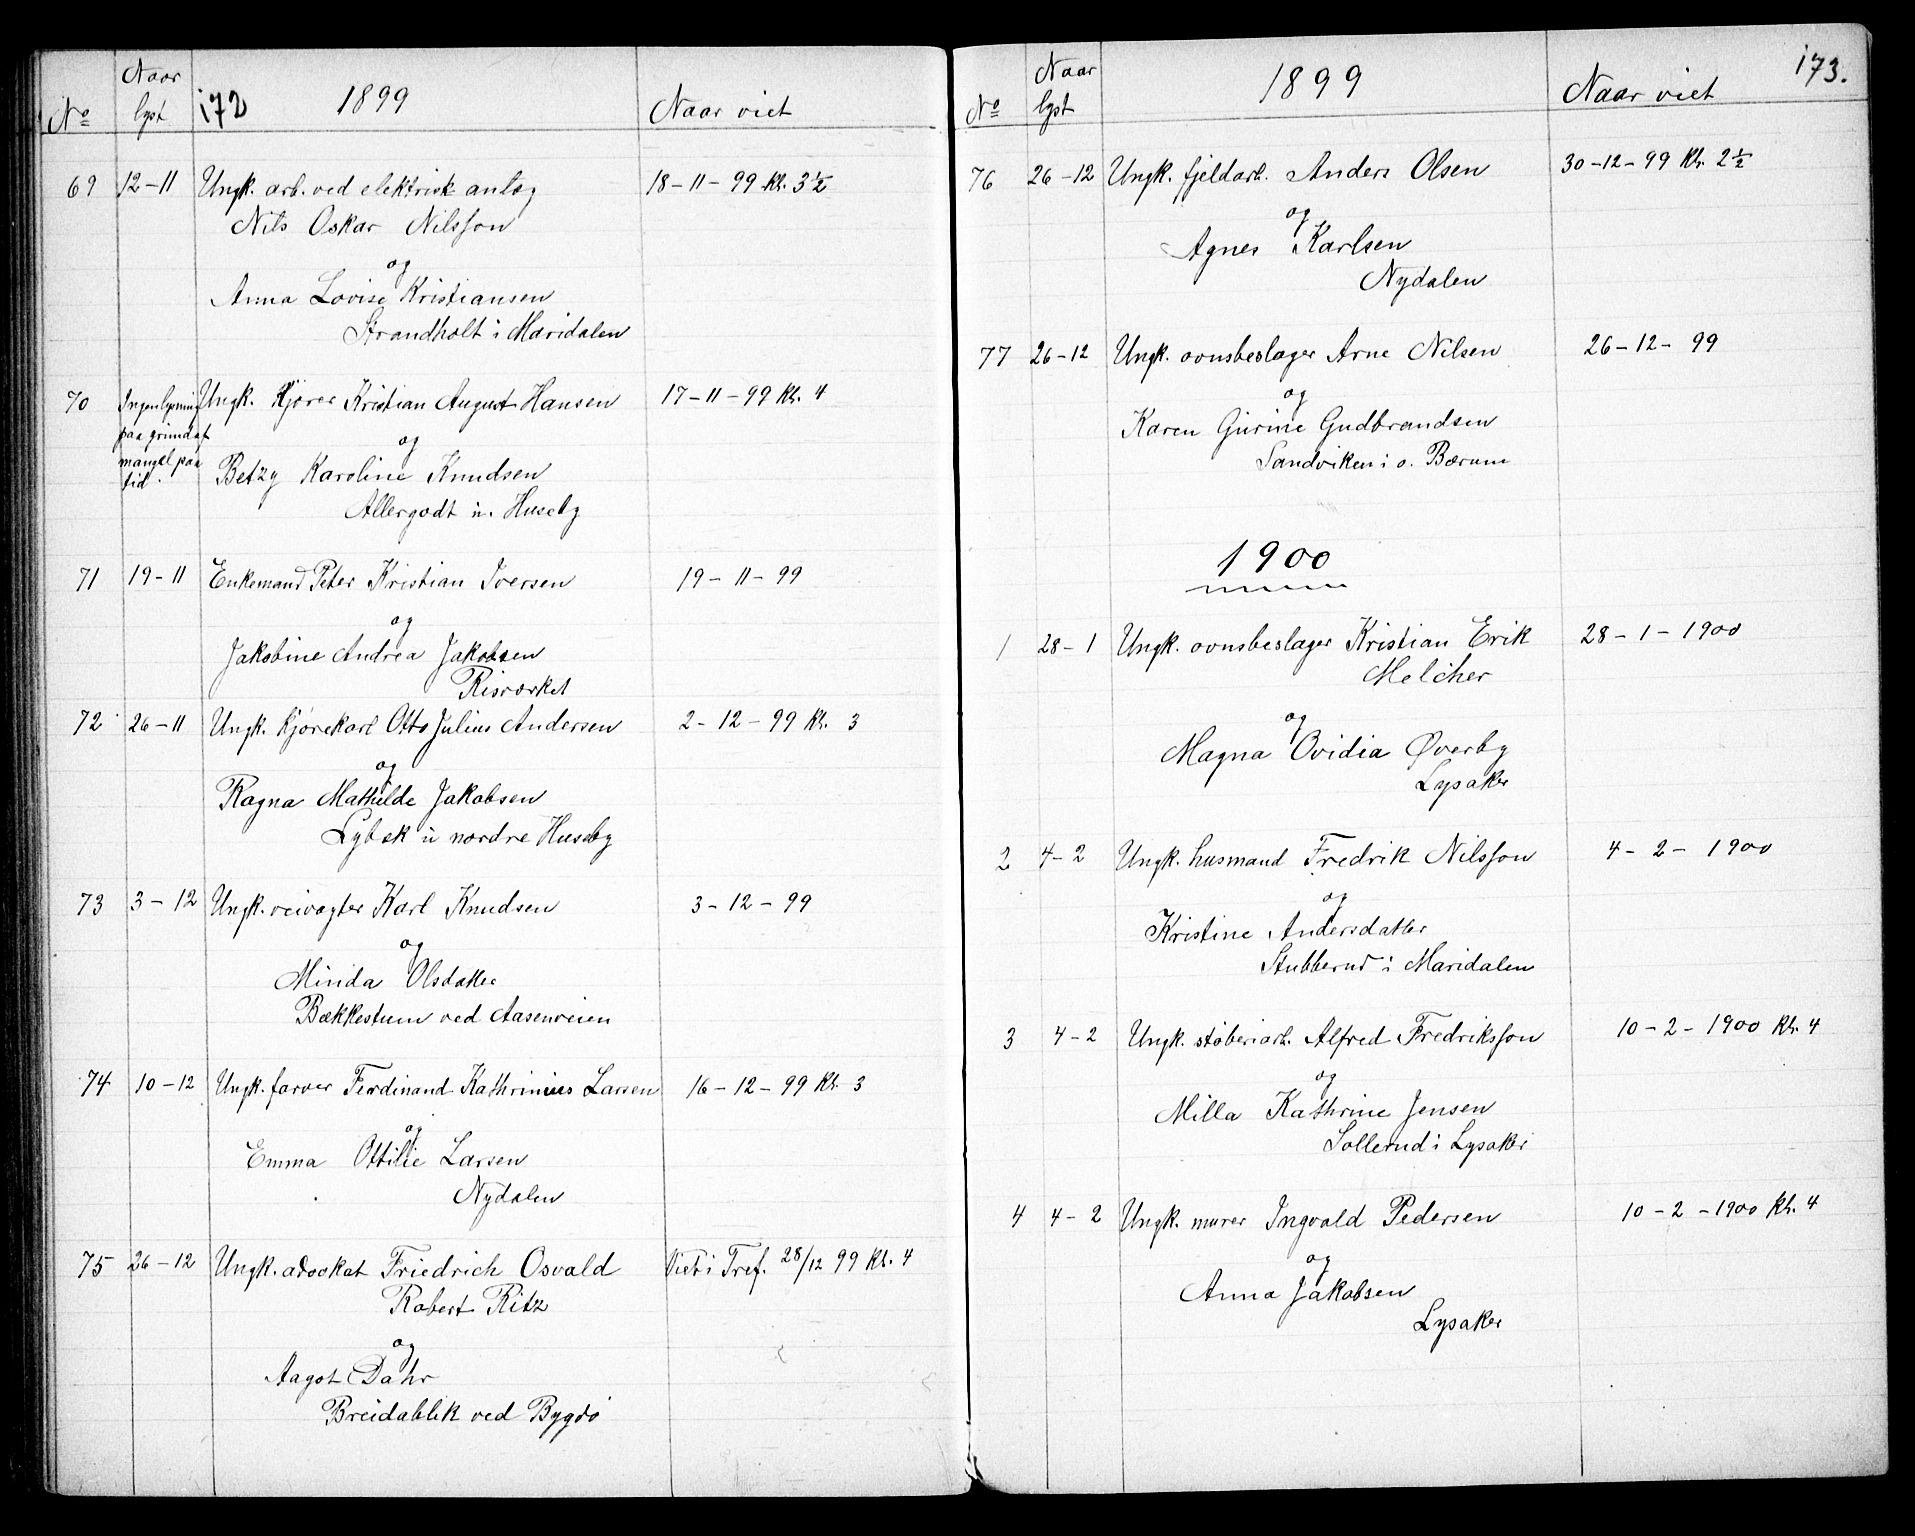 No
Naar
lyst
172
1899
Naar viet
69
12-11
Ungk. arb. ved elektrisk anlæg
18-11-99 Kl. 3½
Nils Oskar Nilsson
og
Anna Lovise Kristiansen
Strandholt i Maridalen
70
Ingen lysning
paa grund af
mangel paa
tid.
Ungk. kjører Kristian August Hansen
17-11-99 Kl. 4
og
Betzy Karoline Knudsen
Allergodt u. Huseby
71
19-11
Enkemand Peter Kristian Iversen
19-11-99
og
Jakobine Andrea Jakobsen
Risværket
72
26-11
Ungk. kjørekarl Otto Julius Andersen
2-12-99 Kl. 3
og
Ragna Mathilde Jakobsen
Lybæk u nordre Huseby
73
3-12
Ungk. veivogter Karl Knudsen
3-12-99
og
Minda Olsdatter
Bækkestuen ved Aasenveien
74
10-12
Ungk. farver Ferdinand Kathrinius Larsen
16-12-99 Kl. 3
og
Emma Ottilie Larsen
Nydalen
75
26-12
Ungk. advokat Friedrich Osvald
Viet i Tref. 28/12 99 Kl. 4
Robert Ritz
og
Aagot Dahr
Breidablik ved Bygdö
No
Naar
lyst
1899
Naar viet
173.
76
26-12
Ungk. fjeldarb. Anders Olsen
30-12-99 Kl. 2½
og
Agnes Karlsen
Nydalen
77
26-12
Ungk. ovnsbeslager Arne Nilsen
26-12-99
og
Karen Gurine Gudbrandsen
Sandviken i ø. Bærum
1900
1
28-1
Ungk. ovnsbeslager Kristian Erik
28-1-1900
Melcher
og
Magna Ovidia Øverby
Lysaker
2
4-2
Ungk. husmand Fredrik Nilsson
4-2-1900
og
Kristine Andersdatter
Stubberud i Maridalen
3
4-2
Ungk. støberiarb. Alfred Fredriksson
10-2-1900 Kl. 4
og
Milla Kathrine Jensen
Sollerud i Lysaker
4
4-2
Ungk. murer Ingvald Pedersen
10-2-1900 Kl. 4
og
Anna Jakobsen
Lysaker